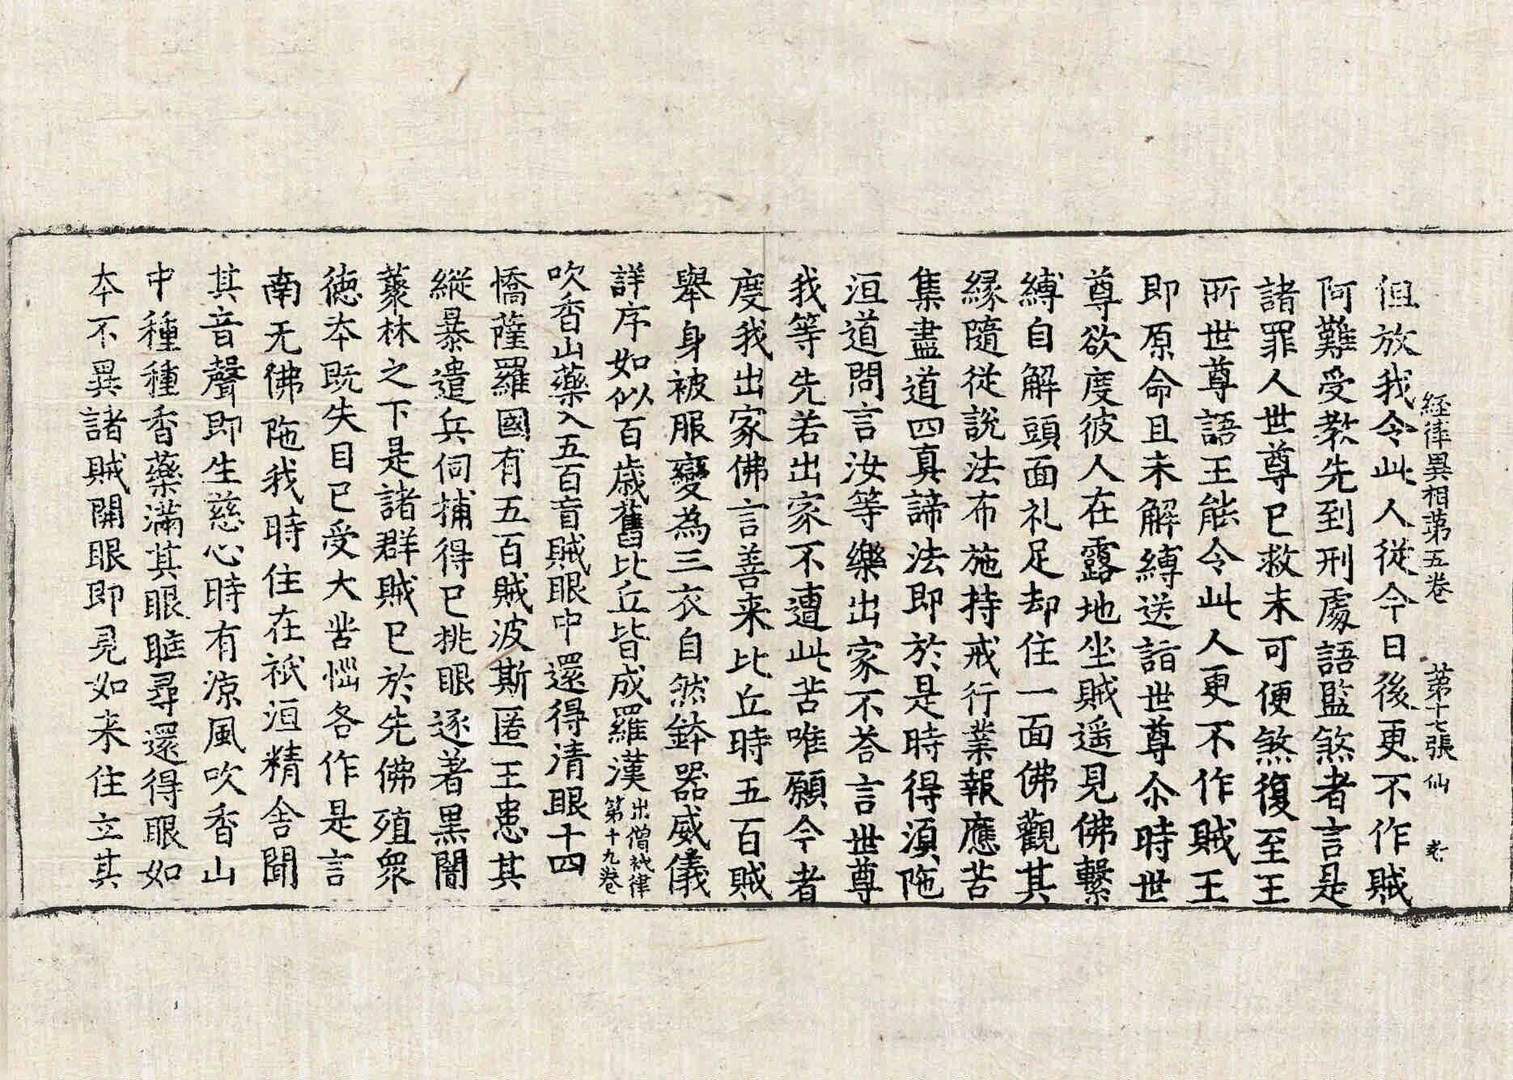 經律異相苐五卷 苐十七張 仙
但放我令此人從今日後更不作賊
阿難受教先到刑處語監煞者言是
諸罪人世尊已救未可便煞復至王
所世尊語王能令此人更不作賊王
即原命且未解縛送詣世尊尒時世
尊欲度彼人在露地坐賊遥見佛繫
縛自解頭面礼足却住一面佛觀其
縁隨從說法布施持戒行業報應苦
集盡道四真諦法即於是時得湏陁
洹道問言汝等樂出家不荅言世尊
我等先若出家不遭此苦唯願今者
度我出家佛言善来比丘時五百賊
舉身被服變為三衣自然鉢器威儀
詳序如似百歳舊比丘皆成羅漢出僧祇律第十九卷
吹香山藥入五百盲賊眼中還得清眼十四
憍薩羅國有五百賊波斯匿王患其
縱暴遣兵伺捕得已挑眼逐著黒闇
藂林之下是諸群賊已於先佛殖衆
徳夲既失目已受大苦惱各作是言
南无佛陁我時住在祇洹精舎聞
其音聲即生慈心時有涼風吹香山
中種種香藥滿其眼眶尋還得眼如
夲不異諸賊開眼即見如来住立其